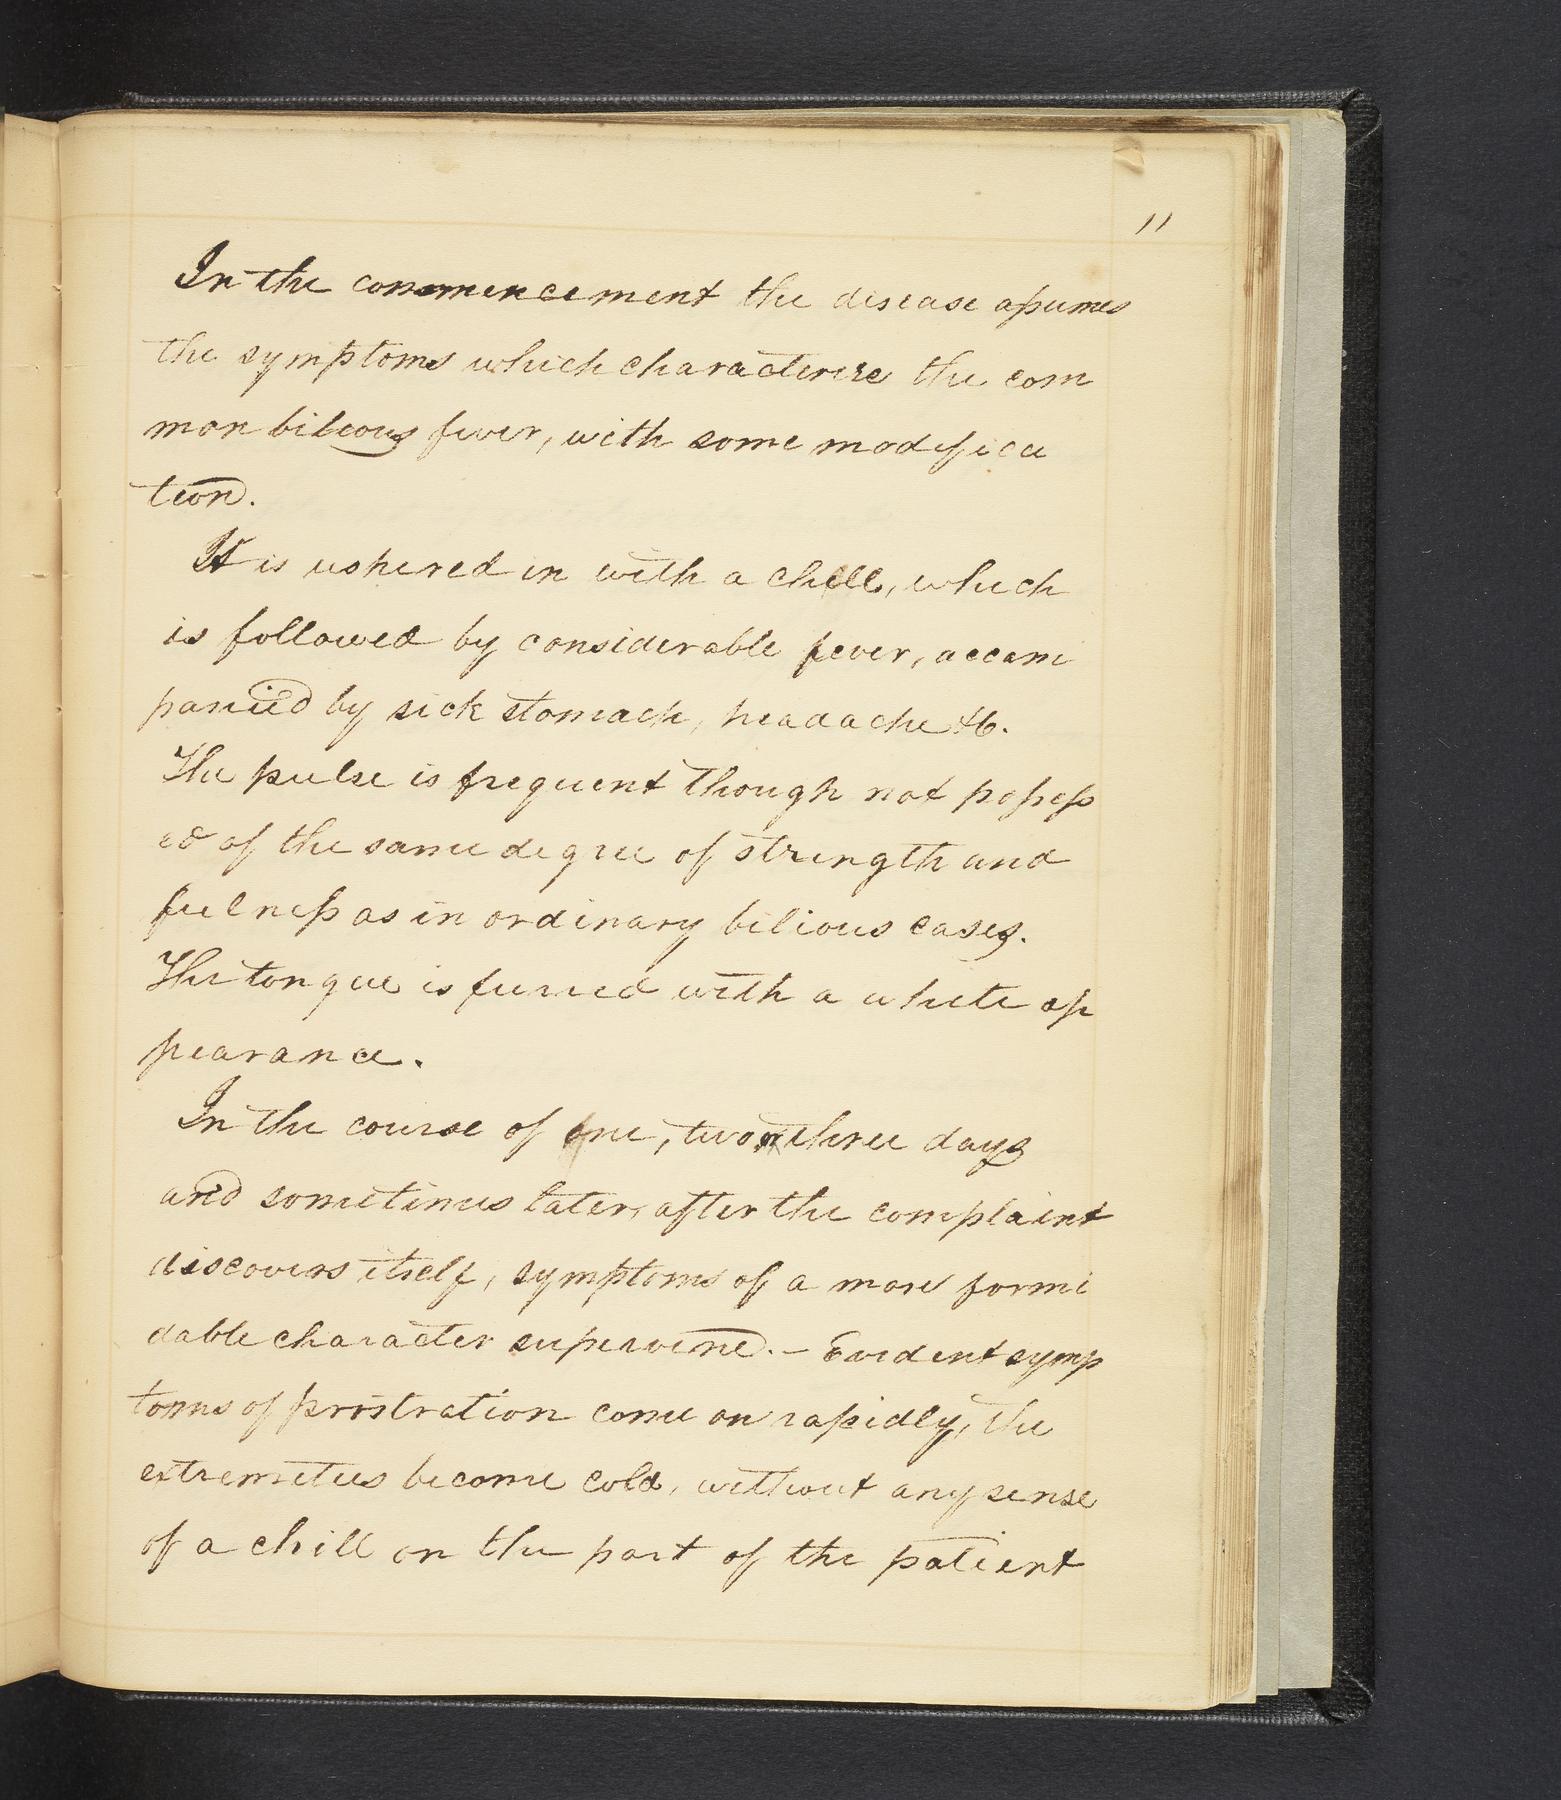 11
In the commencement the disease assumes
the symptoms which characterise the com
mon bilious fever, with some modifica
tion.
It is ushered in with a chill, which
is followed by considerable fever, accom
panied by sick stomach, headache &c.
The pulse is frequent though not possess
ed of the same degree of strength and
fulness as in ordinary bilious cases.
The tongue is furred with a white ap
pearance.
In the course of one, two or three days
and sometimes later, after the complaint
discovers itself, symptoms of a more formi
dable character supervene. – Evident symp
toms of prostration come on rapidly, the
extremeties become cold, without any sense
of a chill on the part of the patient